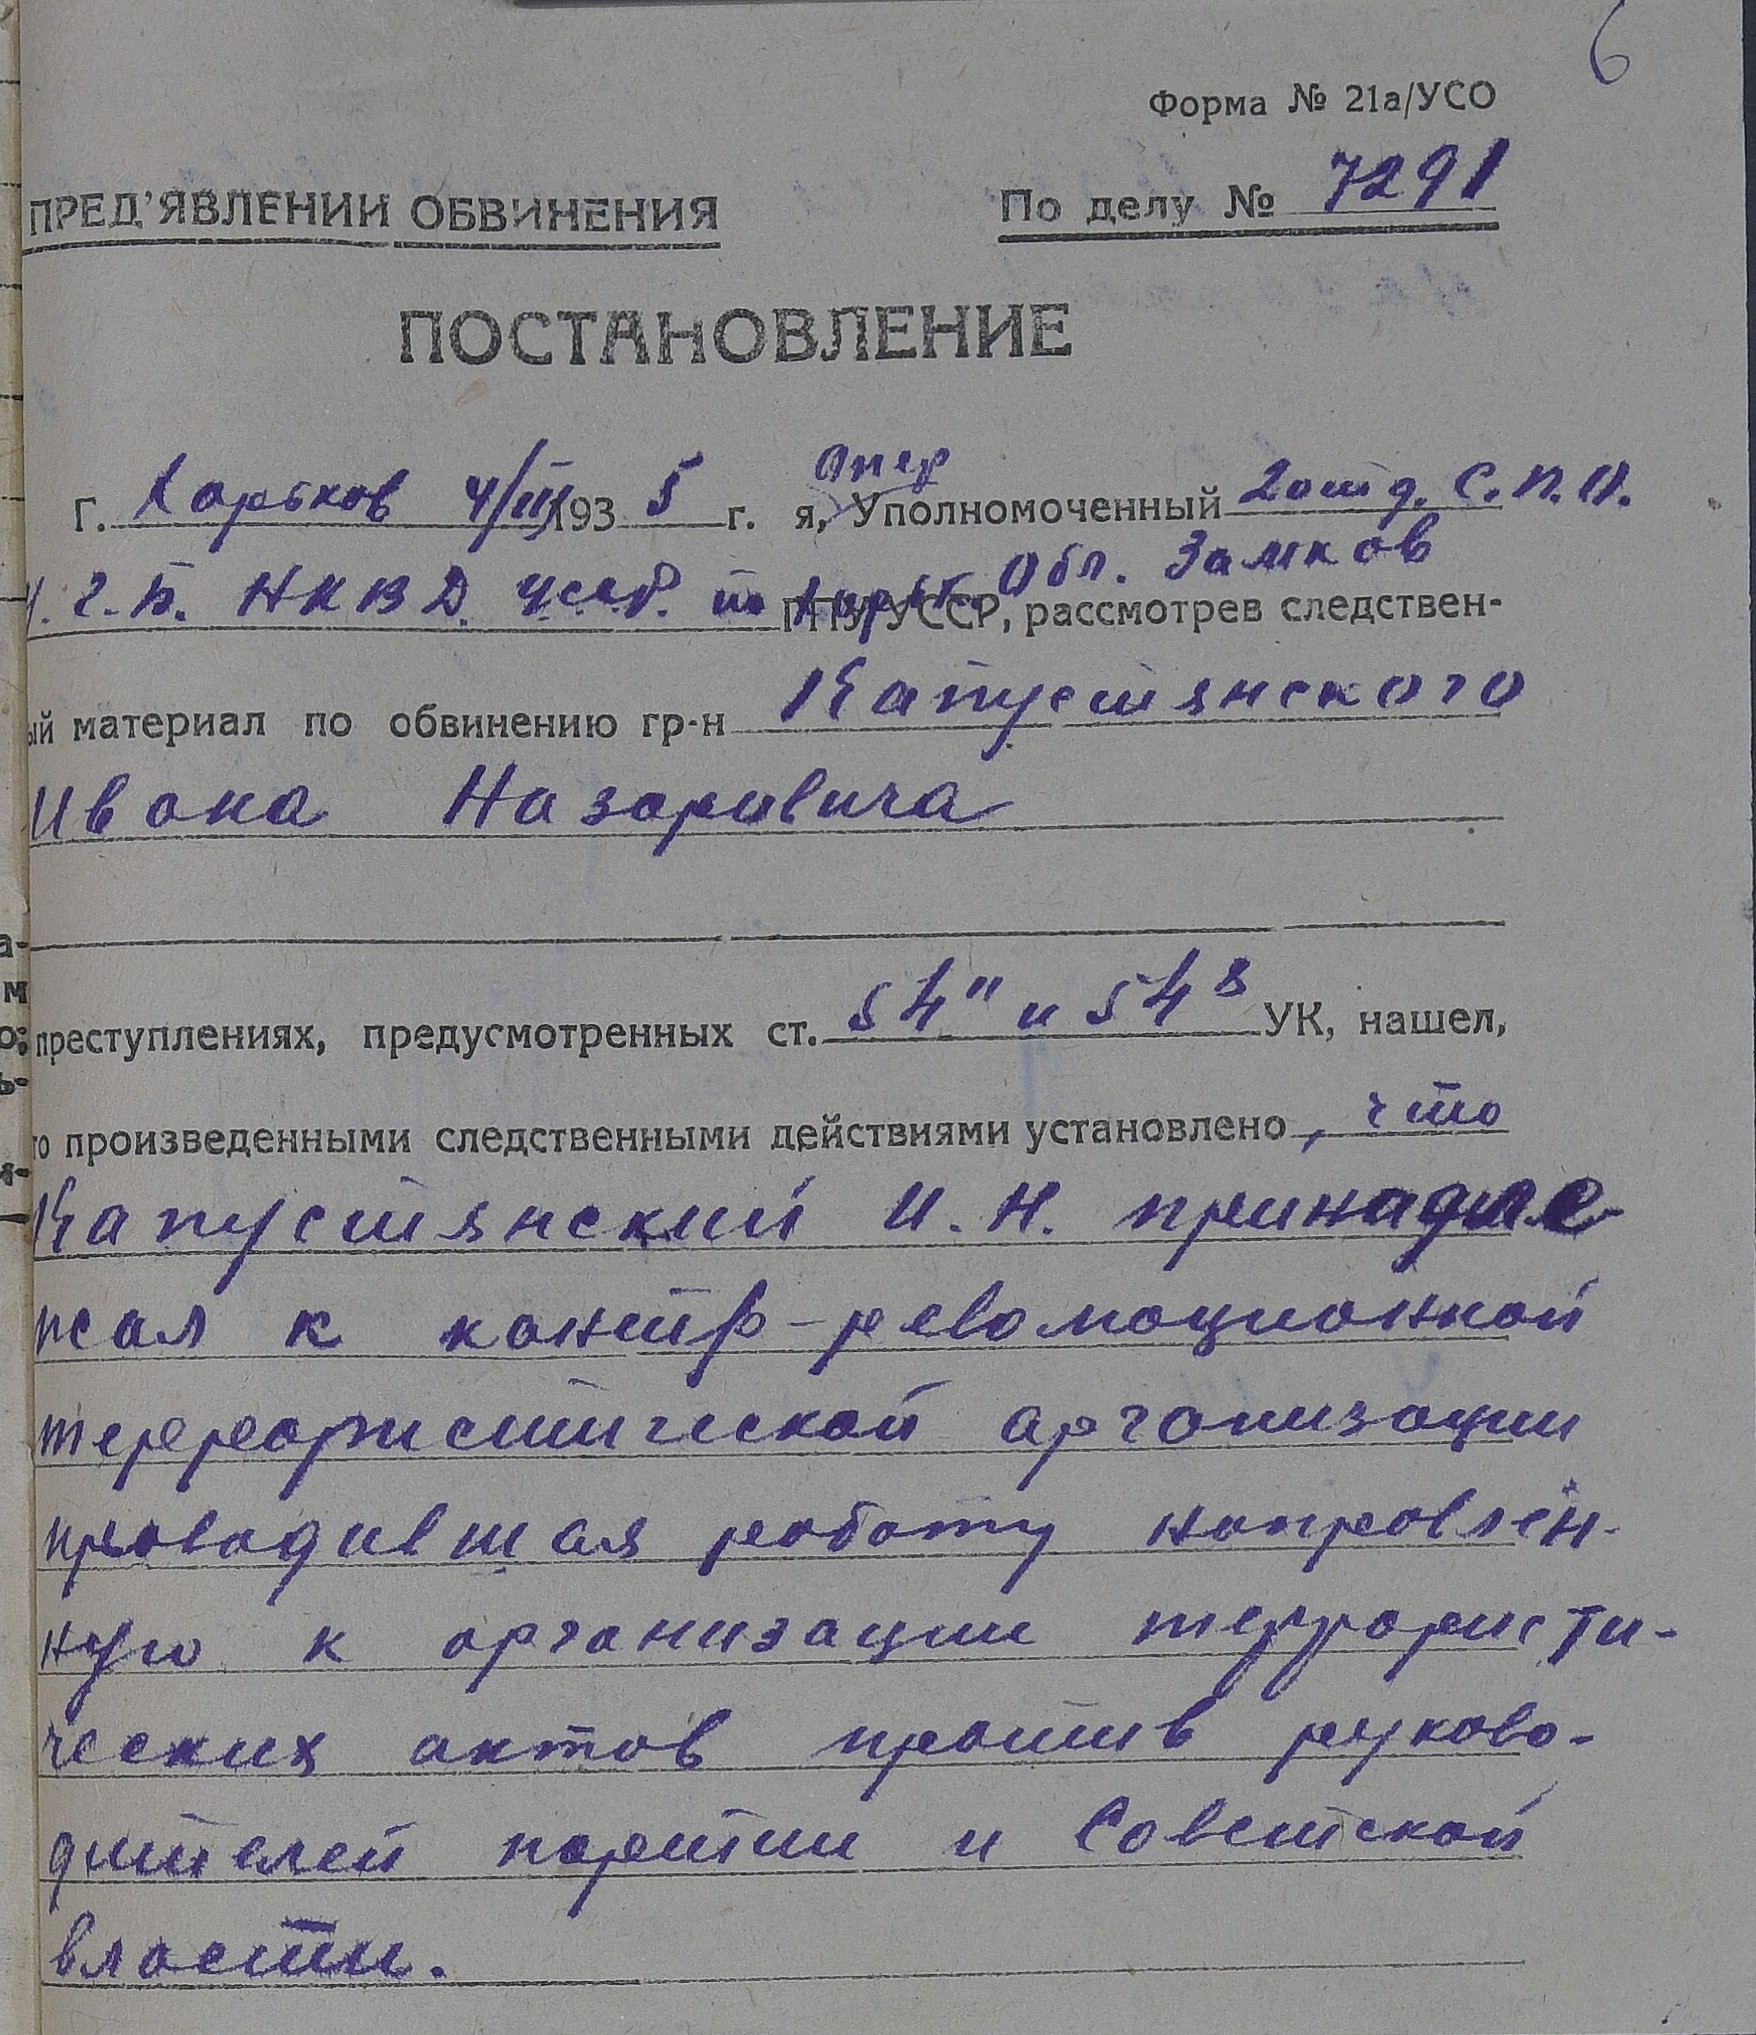 6
Форма № 21а/УСО
ПРЕД'ЯВЛЕНИИ ОБВИНЕНИЯ По делу № 7291
ПОСТАНОВЛЕНИЕ
Опер
Г. Харьков 4/III 1935 г. я, Уполномоченный 2 отд. С.П.О.
У.Г.Б. НКВД УССР. по Харьк. Обл. Замков
ГПУ УССР, рассмотрев следствен-
ый материал по обвинению гр-н Капустянского
Ивана Назаровича
преступлениях, предусмотренных ст. 54" и 54⁸ УК, нашел,
то произведенными следственными действиями установлено, что
Капустянский И. Н. принадле
жал к контр-революционной
террористической организации
проводившая работу направлен-
ную к организации террористи-
ческих актов против руково-
дителей партии и Советской
власти.
а-
м
о;
ь-
я-